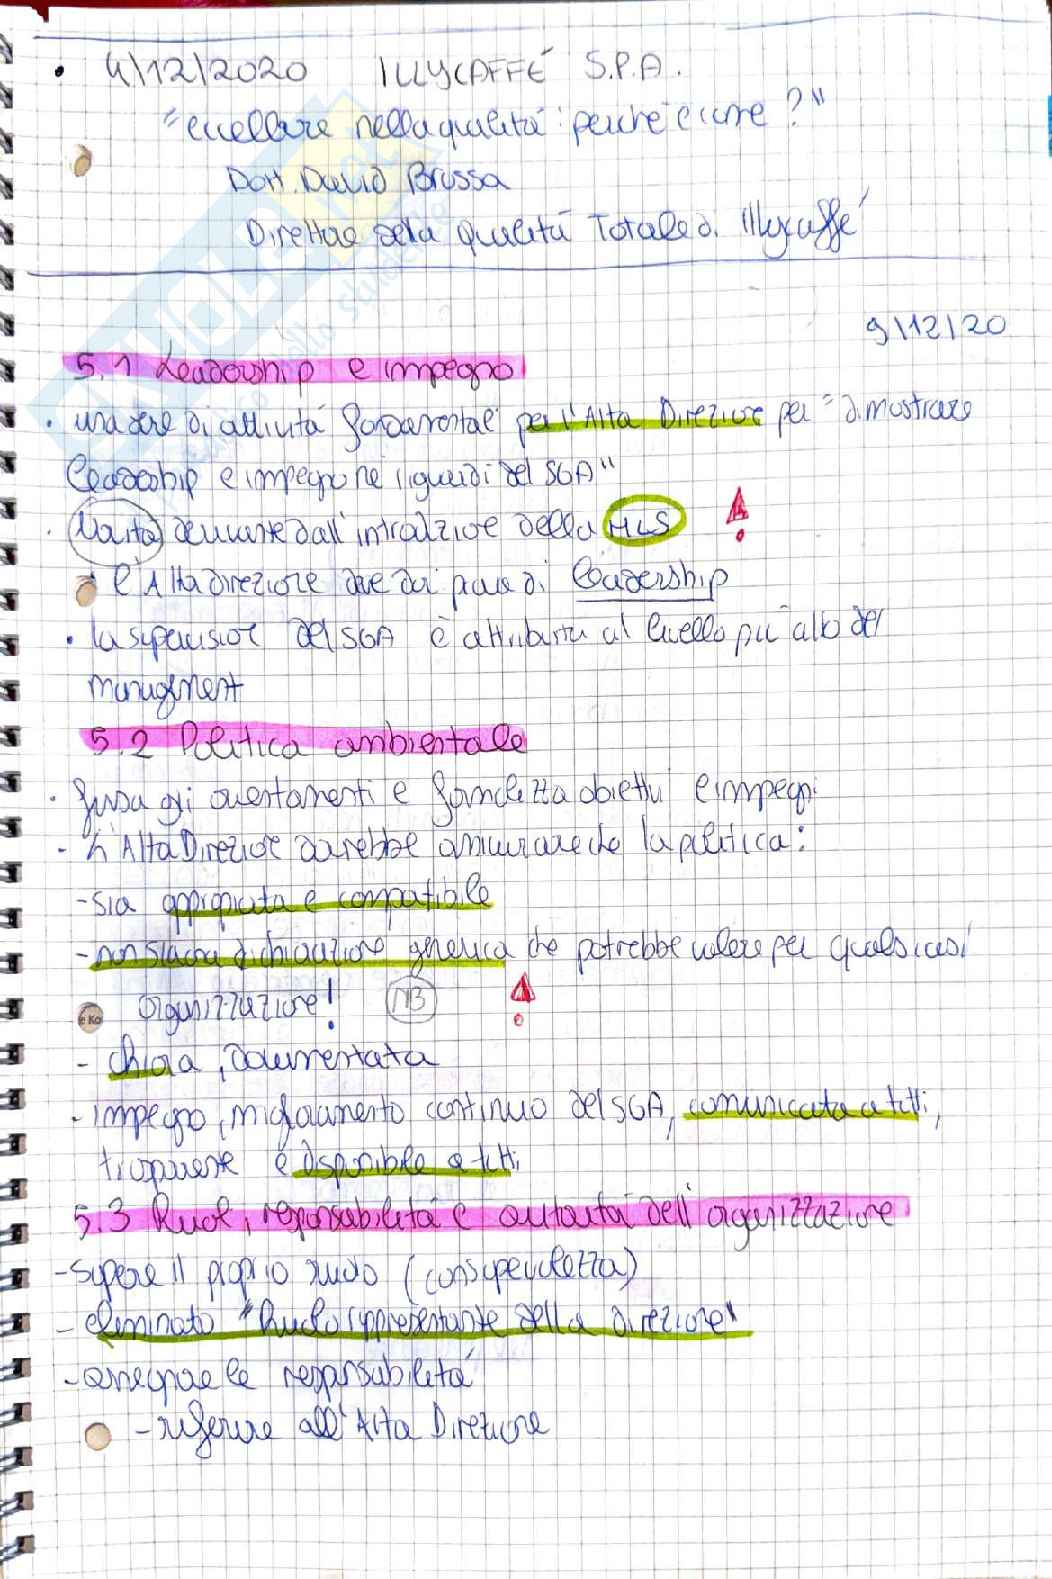 • 4/12/2020 ILLYCAFFÉ S.P.A.
"eccellere nella qualità: perché e come?"
Dott. David Brussa
Direttore della qualità Totale di illycaffé
9/12/20
5.1 Leadership e impegno
• una serie di attività fondamentali per l'Alta Direzione per "dimostrare
leadership e impegno nei riguardi del SGA"
• Novità derivante dall'introduzione della HLS
• l'Alta direzione deve dar prova di leadership
• la supervisione del SGA è attribuita al livello più alto del
management
5.2 Politica ambientale
• fissa gli orientamenti e formalizza obiettivi e impegni
- L'Alta Direzione dovrebbe assicurare che la politica:
- sia appropriata e compatibile
- non sia una dichiarazione generica che potrebbe valere per qualsiasi
organizzazione! NB
- chiara, documentata
- impegno, miglioramento continuo del SGA, comunicata a tutti,
trasparente e disponibile a tutti
5.3 Ruoli, responsabilità e autorità dell'organizzazione
- sapere il proprio ruolo (consapevolezza)
- eliminato "Ruolo rappresentante della direzione"
- assegnare le responsabilità
- riferire all'Alta Direzione